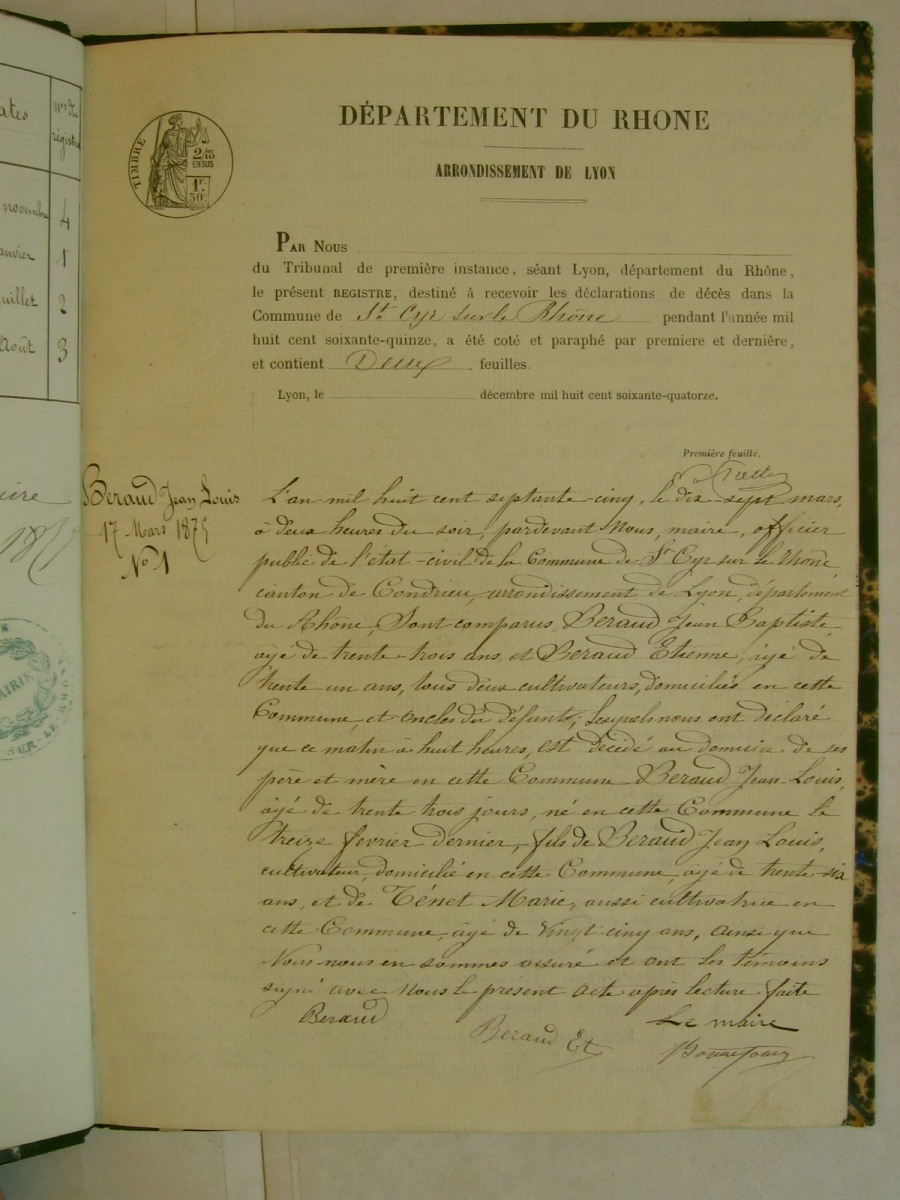 ates
nos du
régistre
novembre
4
anvier
1
juillet
2
Août
3
TIMBRE
2/10
EN SUS
1F.
50c
DÉPARTEMENT DU RHONE
ARRONDISSEMENT DE LYON
PAR NOUS
du Tribunal de première instance, séant Lyon, département du Rhône,
le présent REGISTRE, destiné à recevoir les déclarations de décès dans la
Commune de St Cyr sur le Rhône pendant l'année mil
huit cent soixante-quinze, a été coté et paraphé par premiere et dernière,
et contient Deux feuilles.
Lyon, le décembre mil huit cent soixante-quatorze.
Première feuille.
Beraud Jean Louis
17 Mars 1875
No 1
L'an mil huit cent septante-cinq, le dix sept mars,
à deux heures du soir, pardevant Nous, maire, officier
public de l'état-civil de la Commune de St Cyr sur le Rhône
canton de Condrieu, arrondissement de Lyon, département
du Rhône, Sont comparus Beraud Jean Baptiste,
agé de trente-trois ans, et Beraud Etienne, agé de
trente un ans, tous deux cultivateurs, domiciliés en cette
Commune, et oncles du défunt; lesquels nous ont déclaré
que ce matin à huit heures, est décédé au domicile de ses
père et mère en cette Commune Beraud Jean Louis,
agé de trente trois jours, né en cette Commune le
treize fevrier dernier, fils de Beraud Jean Louis,
cultivateur, domicilié en cette Commune, agé de trente-six
ans, et de Ténet Marie, aussi cultivatrice en
cette Commune, agé de vingt-cinq ans, ainsi que
Nous nous en sommes assuré et ont les témoins
signé avec Nous le present acte après lecture faite
Beraud
Beraud Et
Le maire